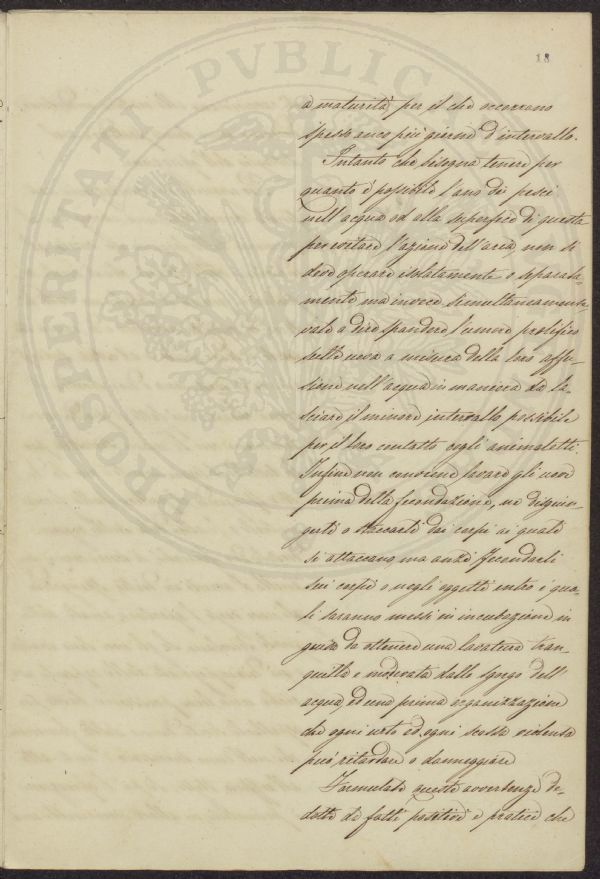 18
PROSPERITATI PVBLICAE
a maturità per il che occorrono
spesso anco più giorni d'intervallo.
Intanto che bisogna tenere per
quanto è possibile l'ano dei pesci
nell'acqua od alla superfice di questa
per evitare l'azione dell'aria, non si
deve operare isolatamente o separata-
mente ma invece simultaneamente
vale a dire spandere l'umore prolifico
sulle uova a misura della loro affu-
sione nell'acqua in maniera da la-
sciare il minore intervallo possibile
per il loro contatto cogli animaletti.
Infine non conviene lavare gli uovi
prima della fecondazione, ne disgiun-
gerli o staccarli dai corpi ai quali
si attaccano ma anzi fecondarli
sui corpi o negli oggetti entro i qua-
li saranno messi in incubazione in
guisa da ottenere una lavatura tran-
quilla e moderata dallo sgorgo dell'
acqua, ed una prima organizzazione
che ogni urto ed ogni scossa violenta
può ritardare o danneggiare
Formulate queste avvertenze de-
dotte da fatti positivi e pratici che